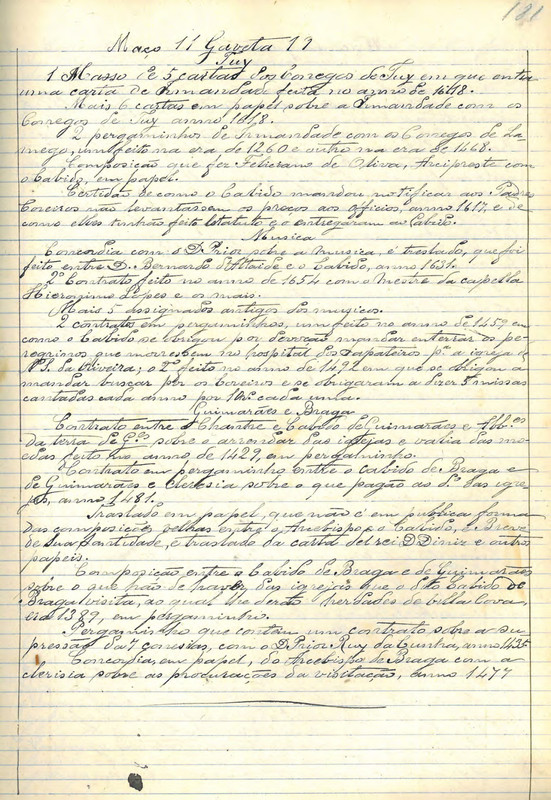 181
Maço 11 Gaveta 19
Tuy
1 Masso de 5 cartas dos Conegos de Tuy em que entra
uma carta de Irmandade feita no anno de 1618.
Mais 6 cartas em papel sobre a Irmandade com os
Conegos de Tuy anno 1618.
2 pergaminhos de Irmandade com os Conegos de La-
mego, um feito na era de 1260 e outro na era de 1468.
Composição que fez Feliciano de Oliva, Arcipreste com
o Cabido, em papel.
Certidão de como o Cabido mandou notificar aos Padres
Coreiros não levantassem os preços aos officios, anno 1617, e de
como elles tinhão feito Estatuto e o entregaram ao Cabido.
Musica
Concordia com o D. Prior sobre a musica, é traslado, que foi
feito entre D. Bernardo d'Attaide e o Cabido, anno 1631.
2º Contrato feito no anno de 1654 com o Mestre da capella
Hieronimo Lopes e os mais.
Mais 5 assignados antigos dos musicos.
2 contratos em pergaminhos, um feito no anno de 1459 em
como o Cabido se obrigou por devoção mandar enterrar os pe-
regrinos que morressem no hospital dos sapateiros pª a igreja de
N. S. da Oliveira; o 2º feito no anno de 1492 em que se obrigou a
mandar buscar por os Coreiros e se obrigaram a dizer 5 missas
cantadas cada anno por cada uma.
Guimarães e Braga
Contrato entre o Chantre e Cabido de Guimarães e Abb.es
da terra de G.es sobre o arrendar das igrejas e valia das mo-
edas feito no anno de 1429, em pergaminho.
Contrato em pergaminho entre o cabido de Braga e
de Guimarães e cleresia sobre o que pagão as dº das igre-
jas, anno 1481.
Traslado em papel, que não é em publica forma
das composições velhas entre o Arcebispo e o Cabido, e Breve
de sua santidade, e traslado da carta del rei D. Diniz e outros
papeis.
Composição entre o Cabido de Braga e de Guimarães
sobre o que hão de haver das igrejas que o dito Cabido de
Braga visita, ao qual lhe derão herdades de Villa Cova,
era 1389, em pergaminho.
Pergaminho que contem um contrato sobre a su-
pressão da 7 conesias, com o D. Prior Ruy da Cunha, anno 1435
Concordia, em papel, do Arcebispo de Braga com a
cleresia sobre as procurações da visitação, anno 1477